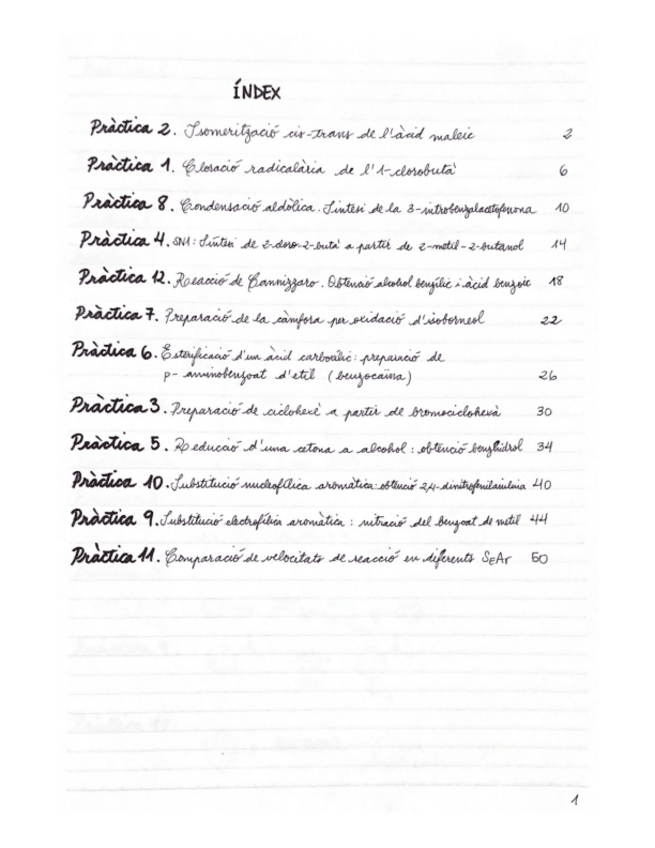 ÍNDEX
Pràctica 2. Isomerització cis-trans de l'àcid maleic 2
Pràctica 1. Cloració radicalària de l'1-clorobutà 6
Pràctica 8. Condensació aldòlica. Síntesi de la 3-nitrobenzalacetofenona 10
Pràctica 4. SN1: Síntesi de 2-cloro-2-butà a partir de 2-metil-2-butanol 14
Pràctica 12. Reacció de Cannizzaro. Obtenció alcohol benzílic i àcid benzoic 18
Pràctica 7. Preparació de la càmfora per oxidació d'isoborneol 22
Pràctica 6. Esterificació d'un àcid carboxílic: preparació de
p-aminobenzoat d'etil (benzocaïna) 26
Pràctica 3. Preparació de ciclohexè a partir de bromociclohexà 30
Pràctica 5. Reducció d'una cetona a alcohol: obtenció benzhidrol 34
Pràctica 10. Substitució nucleofílica aromàtica: obtenció 2,4-dinitrofenilanilina 40
Pràctica 9. Substitució electrofílica aromàtica: nitració del benzoat de metil 44
Pràctica 11. Comparació de velocitats de reacció en diferents SEAr 50
1